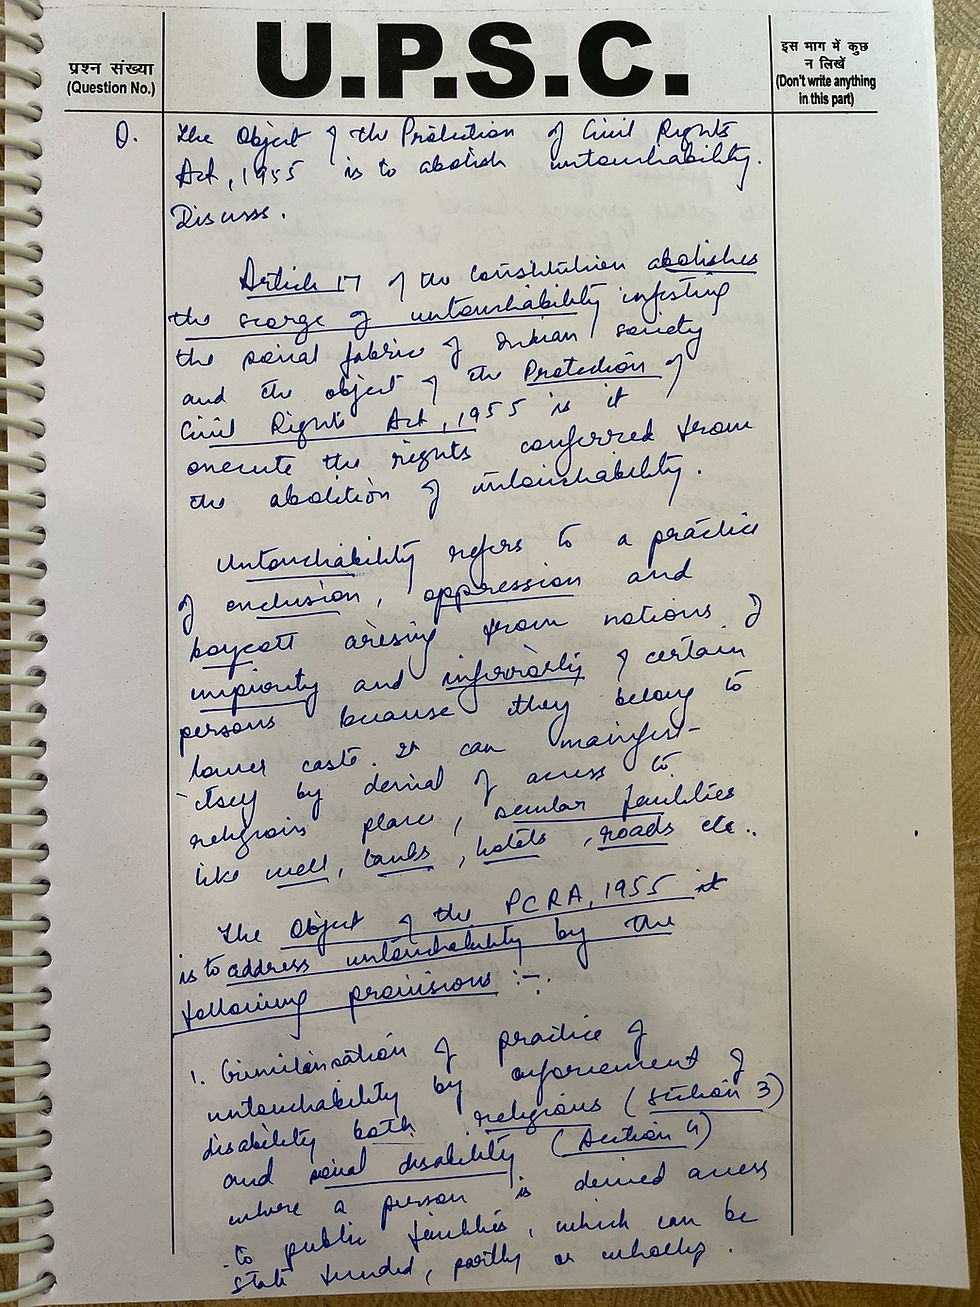 प्रश्न संख्या
(Question No.)
U.P.S.C.
इस भाग में कुछ
न लिखें
(Don't write anything
in this part)
Q. The Object of the Protection of Civil Rights
Act, 1955 is to abolish untouchability.
Discuss.
Article 17 of the Constitution abolishes
the scorge of untouchability infesting
the social fabric of Indian society
and the object of the Protection of
Civil Rights Act, 1955 is it
execute the rights conferred from
the abolition of untouchability.
Untouchability refers to a practice
of exclusion, oppression and
boycott arising from notions of
impiority and inferiority of certain
persons because they belong to
lower caste. It can manifest
itself by denial of access to
religious place, secular facilities
like well, tanks, hotels, roads etc..
The Object of the PCRA, 1955 it
is to address untouchability by the
following provisions :-.
1. Criminlisation of practice of
untouchability by enforcement of
disability both religious (Section 3)
and social disability (Section 4)
where a person is denied access
to public facilities, which can be
state funded, partly or wholly.